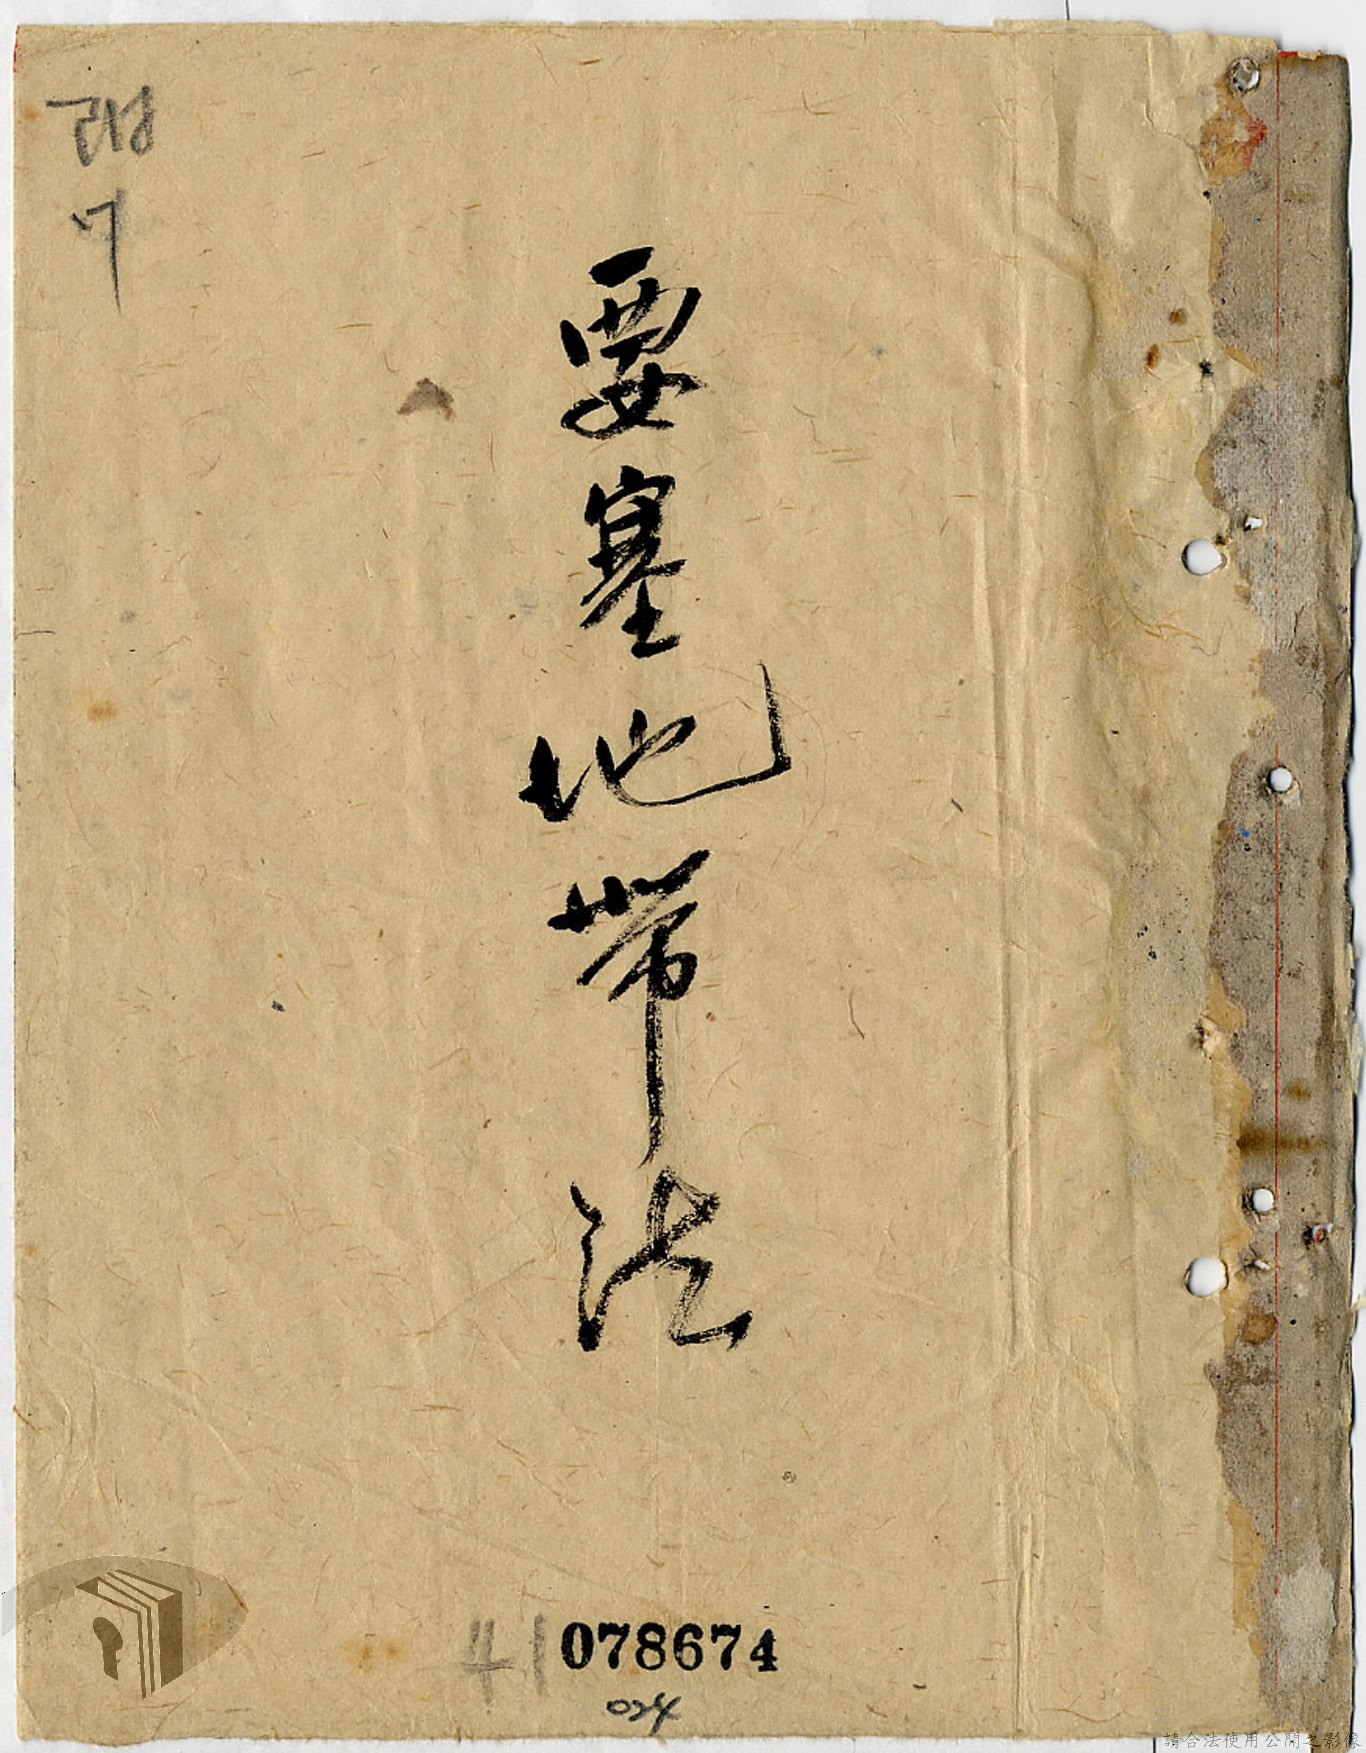 要塞地帶法
41 078674
請合法使用公開之影像